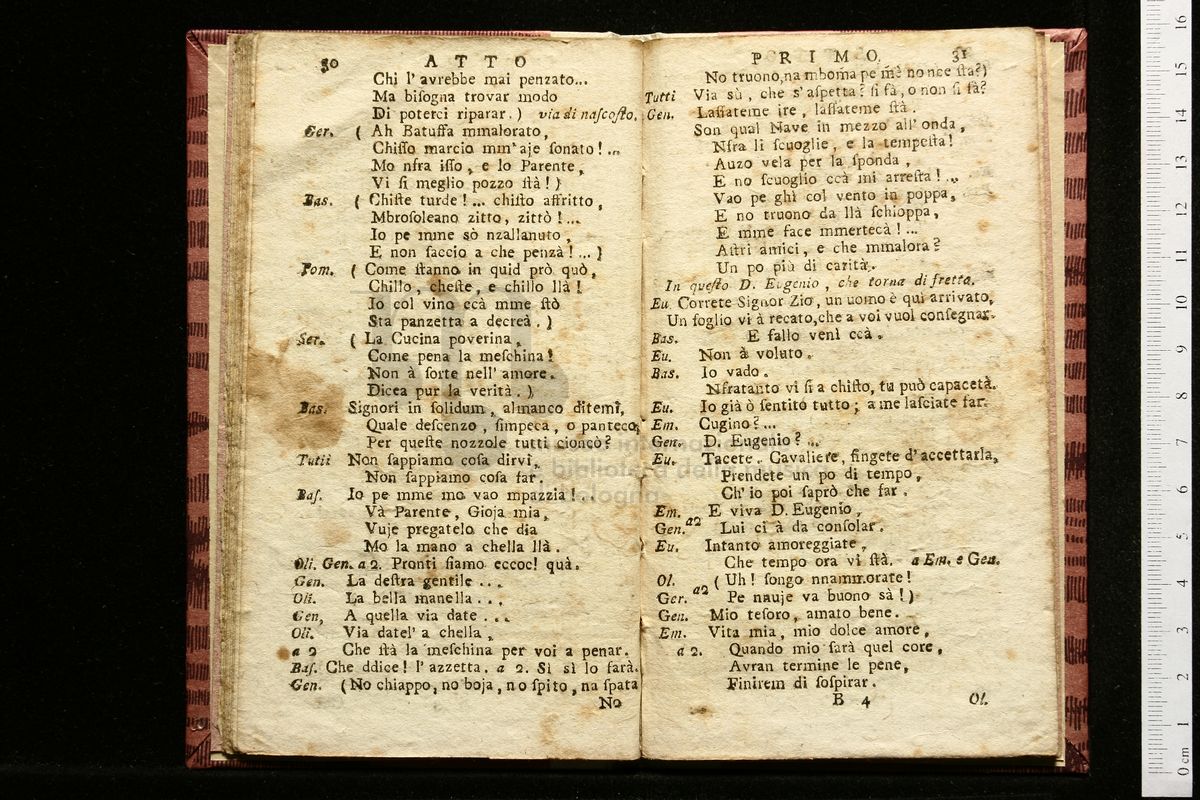 30 ATTO
Chi l' avrebbe mai penzato...
Ma biſogna trovar modo
Di poterci riparar. ) via di naſcoſto.
Ger. ( Ah Batuffa mmalorato,
Chiſſo marcio mm' aje ſonato! ...
Mo nfra iſſo, e lo Parente,
Vi ſi meglio pozzo ſtà! )
Bas. ( Chiſte turde! ... chiſto affritto,
Mbroſoleano zitto, zittò! ...
Io pe mme sò nzallanuto,
E non faccio a che penzà! ... )
Pom. ( Come ſtanno in quid prò quò,
Chillo, cheſte, e chillo llà!
Io col vino ccà mme ſtò
Sta panzetta a decreà. )
Ser. ( La Cucina poverina,
Come pena la meſchina!
Non à ſorte nell' amore.
Dicea pur la verità. )
Bas. Signori in ſolidum, almanco ditemi,
Quale deſcenzo, ſimpeca, o panteco,
Per queſte nozzole tutti cioncò?
Tutii Non ſappiamo coſa dirvi,
Non ſappiamo coſa far.
Baſ. Io pe mme mo vao mpazzia! ..
Và Parente, Gioja mia,
Vuje pregatelo che dia
Mo la mano a chella llà.
Oli. Gen. a 2. Pronti ſiamo eccoc! quà.
Gen. La deſtra gentile ...
Oli. La bella manella ...
Gen, A quella via date ...
Oli. Via datel' a chella,
a 2 Che ſtà la meſchina per voi a penar.
Baſ. Che ddice! l' azzetta. a 2. Sì sì lo farà.
Gen. (No chiappo, no boja, no ſpito, na ſpata
No
PRIMO. 31
No truono, na mboma pe mè no nce ſta?)
Tutti Via sù, che s' aſpetta? ſi fà, o non ſi fà?
Gen. Laſſateme ire, laſſateme ſtà.
Son qual Nave in mezzo all' onda,
Nfra li ſcuoglie, e la tempeſta!
Auzo vela per la ſponda,
E no ſcuoglio ccà mi arreſta! ...
Vao pe ghì col vento in poppa,
E no truono da llà ſchioppa,
E mme face mmertecà! ...
Aſtri amici, e che mmalora?
Un po più di carità.
In queſto D. Eugenio, che torna di fretta.
Eu. Correte Signor Zio, un uomo è quì arrivato,
Un foglio vi à recato, che a voi vuol conſegnar.
Bas. E fallo venì ccà.
Eu. Non à voluto.
Bas. Io vado.
Nfratanto vi ſi a chiſto, tu può capacetà.
Eu. Io già ò ſentito tutto; a me laſciate far.
Em. Cugino? ...
Gen. D. Eugenio? ...
Eu. Tacete. Cavaliere, fingete d' accettarla,
Prendete un po di tempo,
Ch' io poi ſaprò che far.
Em. E viva D. Eugenio,
Gen. a2 Lui ci à da conſolar.
Eu. Intanto amoreggiate,
Che tempo ora vi ſtà. a Em. e Gen.
Ol. ( Uh! ſongo nnammorate!
Ger. a2 Pe nauje va buono sà! )
Gen. Mio teſoro, amato bene.
Em. Vita mia, mio dolce amore,
a 2. Quando mio ſarà quel core,
Avran termine le pene,
Finirem di ſoſpirar.
B 4 Ol.